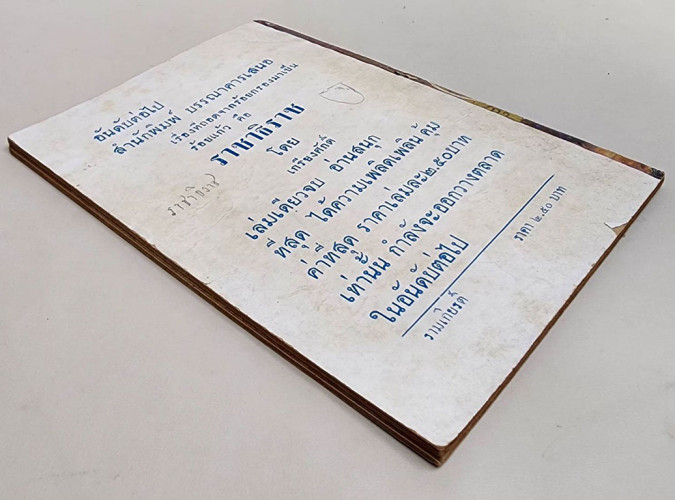 อันดับต่อไป
สำนักพิมพ์ บรรณาคารเสนอ
เรื่องที่ถอดจากร้อยกรองมาเป็น
ร้อยแก้ว คือ
ราชาธิราช
โดย
เกรียงศักดิ์
ราชาธิราช
เล่มเดียวจบ อ่านสนุก
ที่สุด ได้ความเพลิดเพลิน คุ้ม
ค่าที่สุด ราคาเล่มละ ๒.๕๐ บาท
เท่านั้น กำลังจะออกวางตลาด
ในอันดับต่อไป
รามเกียรติ์
ราคา ๒.๕๐ บาท